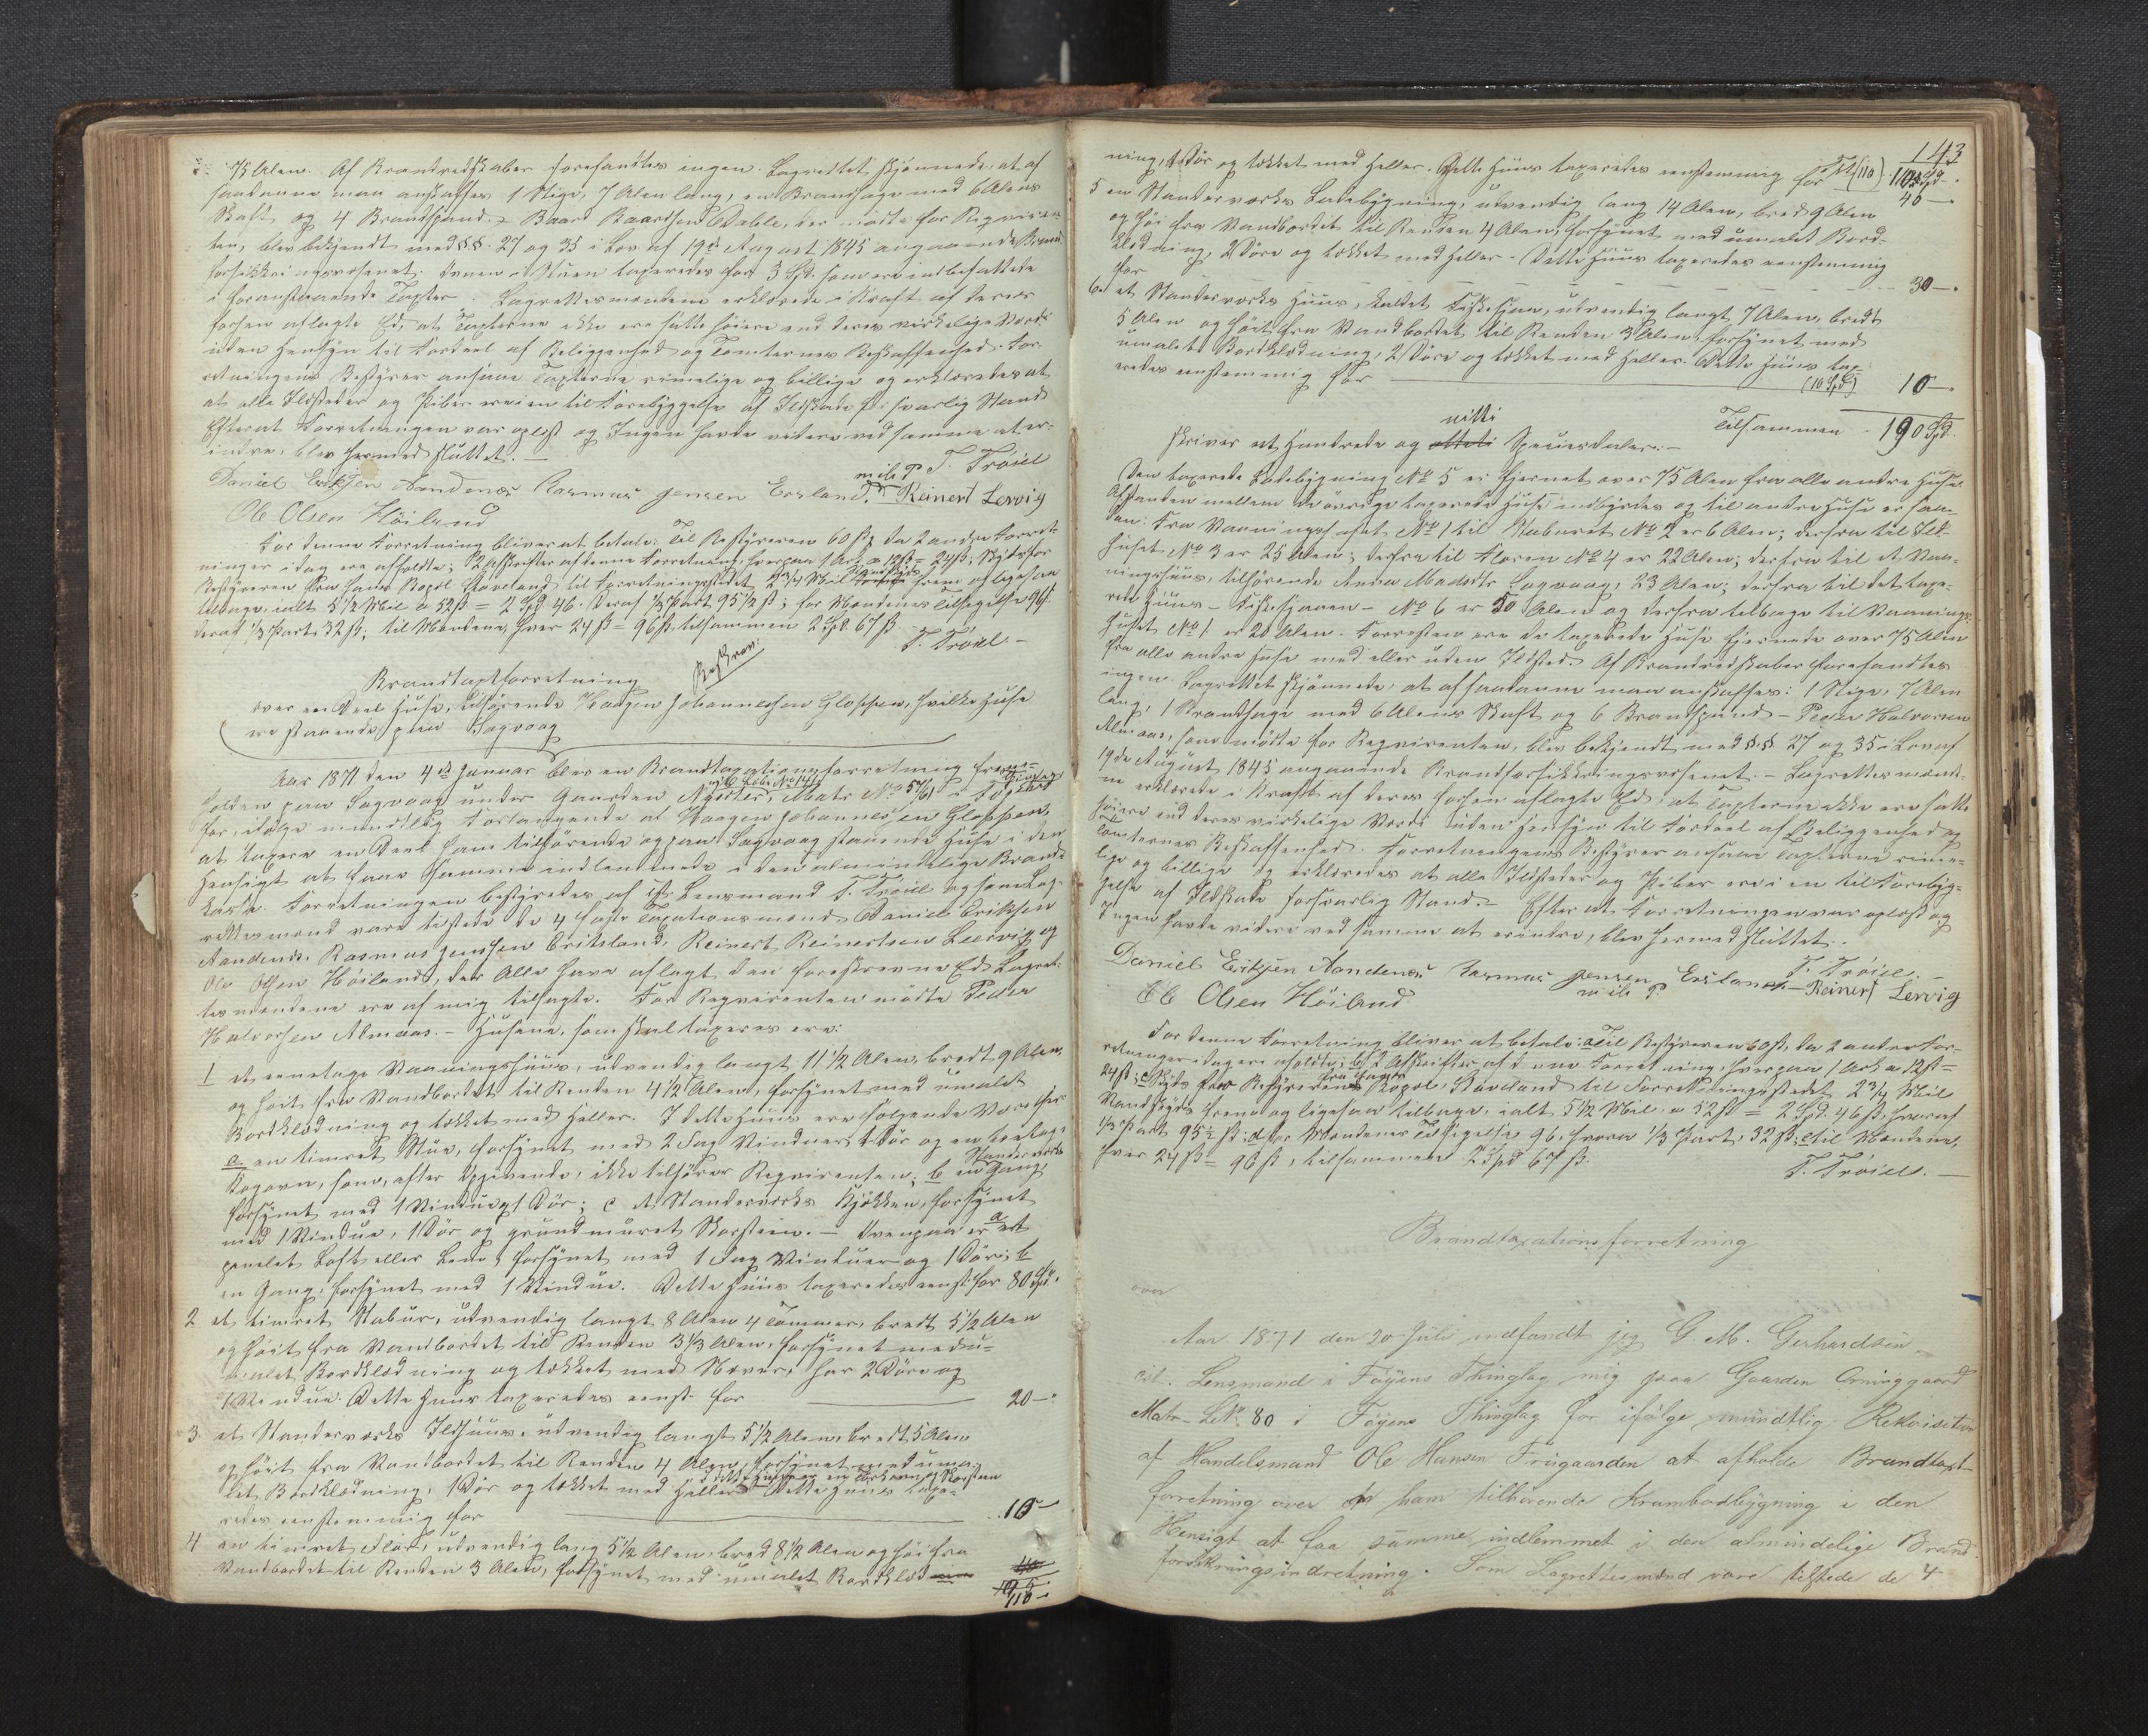 75 Alen. Af Brandredskaber forefandtes ingen. Lagrettet skjønnede, at af
saadanne maa anskaffes 1 Stige, 7 Alen lang, en Brandhage med 6 Alens
Skaft og 4 Brandspand. Baard Baardsen Dable, der mødte for Reqviren-
ten, blev bekjendt med §§. 27 og 35 i Lov af 19de August 1845 angaaende Brand-
forsikkringsvæsenet. Ovnen i Stuen taxeredes for 3 Spd. som ere indbefattede
i foranstaaende Taxter. Lagrettesmændene erklærede i Kraft af deres
forhen aflagte Ed, at Taxterne ikke ere satte høiere end deres virkelige Værdi
uden Hensyn til Fordeel af Beliggenhed og Tomternes Beskaffenhed. For-
retningens Bestyrer ansaae Taxterne rimelige og billige og erklæredes at
at alle Ildsteder og Piber ere i en til Forebyggelse af Ildskade forsvarlig Stand
Efterat Forretningen var oplæst og Ingen havde videre ved samme at er-
indre, blev hermed sluttet. —
Daniel Eriksen Aandenes Rasmus Jensen Ersland. m. i. l. P. T. Trøiel Reinert Lervig
Ole Olsen Höiland
For denne Forretning bliver at betale: Til Bestyreren 60 ß, da 2 andre Forret-
ninger i dag ere afholdte; 2 Afskrifter af denne Forretning, hvorpaa 1 Ark a 12 ß = 24 ß; Skyds for
Bestyreren fra hans Bopæl Hovland til Forretningsstedet 2 3/4 Miil Vandskyds frem og ligesaa
tilbage, ialt 5 1/2 Miil a 52 ß = 2 Spd 46. Deraf 1/3 Part 95 1/2 ß; for Mændenes Tilsigelse 96 ß
deraf 1/3 Part: 32 ß; til Mændene, hver 24 ß = 96 ß, tilsammen 2 Spd. 67 ß
T. Trøiel —
Brandtaxtforretning
Beskrev:
over en Deel Huse, tilhørende Haagen Johannessen Gloppen, hvilke Huse
ere staaende paa Sagvaag
Aar 1871 den 4de Januar blev en Brandtaxationsforretning frem-
holden paa Sagvaag under Gaarden Nysæter, Matr. No 57/61 i Föyens
for, ifølge mundtlig Forlangende af Haagen Johannessen Gloppen,
at taxere en Deel ham tilhørende og paa Sagvaag staaende Huse i den
Hensigt at faae samme indlemmede i den almindelige Brand-
kasse. Forretningen bestyredes af cst. Lensmand T. Trøiel og som Lag-
rettesmænd vare tilstede de 4 faste Taxationsmænd Daniel Eriksen
Aandenes, Rasmus Jensen Eritsland, Reinert Reinertsen Leervig og
Ole Olsen Høiland, der Alle have aflagt den foreskrevne Ed. Lagret-
tesmændene ere af mig tilsagte. For Reqvirenten mødte Peder
Halvorsen Almaas. — Husene, som skal taxeres ere:
1 et eenetages Vaaningshuus, udvendig langt 11 1/2 Alen, bredt 9 Alen
og høit fra Vandbordet til Renden 4 1/2 Alen, forsynet med umalet
Bordklædning og tækket med Heller. I dette Huus ere følgende Værelser
a. en timret Stue, forsynet med 2 Fag Vinduer, 1 Dør og en toetages
Kogeovn, som, efter Opgivende, ikke tilhører Reqvirenten; b en Standerværks Gang,
forsynet med 1 Vindue og 1 Dør; c et Standerværks Kjøkken, forsynet
med 1 Vindue, 1 Dør og grundmuret Skorsteen. — Ovenpaa er a et
panelet Loft eller Lem, forsynet med 1 Fag Vinduer og 1 Dør; b
en Gang, forsynet med 1 Vindue. Dette Huus taxeredes eenst. for 80 Spd.
2 et timret Stabur, udvendig langt 8 Alen 4 Tommer, bredt 5 1/2 Alen
og høit fra Vandbordet til Renden 3 1/3 Alen, forsynet med u-
malet Bordklædning og tækket med Næver, har 2 Döre og
1 Vindue. Dette Huus taxeredes eenst. for 20 —
3. et Standerværks Ildhuus, udvendig langt 5 1/2 Alen, bredt 5 Alen
og høit fra Vandbordet til Renden 4 Alen, forsynet med uma-
let Bordklædning, 1 Dør og tækket med Heller. Dette Huus taxe-
redes eenstemmig for 10
4 en timret Flor, udvendig lang 5 1/2 Alen, bred 8 1/2 Alen og høi fra
Vandbordet til Renden 3 Alen, forsynet med umalet Bordklæd-
110 —
143
ning, 1 Dør og tækket med Heller. Dette Huus taxeredes eenstemmig for
40 —
5 en Standerværks Ladebygning, udvendig lang 14 Alen, bred 9 Alen
og høi fra Vandbordet til Renden 4 Alen, forsynet med umalet Bord-
klædning, 2 Döre og tækket med Heller. Dette Huus taxeredes eenstemmig
for 30 —
6. et Standerværks Huus, kaldet Fiskehjau, udvendig langt 7 Alen, bredt
5 Alen og høit fra Vandbordet til Renden 3 Alen, forsynet med
umalet Bordklædning, 2 Döre og tækket med Heller. Dette Huus tax-
eredes eenstemmig for (10 Spd) 10 —
Tilsammen 190 Spd.
skriver et Hundrede og nitti Speciesdaler. —
Den taxerede Ladebygning No 5 er fjernet over 75 Alen fra alle andre Huse.
Afstanden mellem de øvrige taxerede Huse indbyrdes og til andre Huse er saa-
dan: Fra Vaaningshuset No 1 til Staburet No 2 er 6 Alen; derfra til Ild-
huset No 3 er 25 Alen; derfra til Floren No 4 er 22 Alen; derfra til et Vaa-
ningshuus, tilhørende Anna Madsdtr Sagvaag, 23 Alen; derfra til det taxe-
rede Huus — Fiskehjauen — No 6 er 50 Alen og derfra tilbage til Vaanings-
huset No 1 er 20 Alen. Forresten ere de taxerede Huse fjernede over 75 Alen
fra alle andre Huse med eller uden Ildsted. Af Brandredskaber forefandtes
ingen. Lagrettet skjønnede, at af saadanne maa anskaffes: 1 Stige, 7 Alen
lang, 1 Brandhage med 6 Alens Skaft og 6 Brandspand — Peder Halvorsen
Almaas, som mødte for Reqvirenten, blev bekjendt med §§ 27 og 35 i Lov af
19de August 1845 angaaende Brandforsikkringsvæsenet. — Lagrettesmænde-
ne erklærede i Kraft af deres forhen aflagte Ed, at Taxterne ikke ere satte
høiere end deres virkelige Værdi uden Hensyn til Fordeel af Beliggenhed og
Tomternes Beskaffenhed. Forretningens Bestyrer ansaae Taxterne rime-
lige og billige og erklæredes at alle Ildsteder og Piber ere i en til Forebyg-
gelse af Ildskade forsvarlig Stand. — Efterat Forretningen var oplæst og
Ingen havde videre ved samme at erindre, blev hermed sluttet.
T. Trøiel. —
Daniel Eriksen Aandenes Rasmus Jensen Ersland — Reinert Lervig
m. i. l. P.
Ole Olsen Höiland
For denne Forretning bliver at betale: a Til Bestyreren 60 ß, da 2 andre For-
retninger i dag ere afholdte; b 2 Afskrifter af denne Forretning, hvorpaa 1 Ark a 12 ß =
24 ß; c Skyds for Bestyreren fra hans Bopæl Hovland til Forretningsstedet 2 3/4 Miil
Vandskyds frem og ligesaa tilbage, ialt 5 1/2 Miil a 52 ß = 2 Spd. 46 ß, hvoraf
1/3 Part 95 1/2 ß; d for Mændenes Tilsigelse 96, hvoraf 1/3 Part, 32 ß; e til Mændene,
hver 24 ß = 96 ß, tilsammen 2 Spd 67 ß.
T. Trøiel. —
Brandtaxationsforretning
over
Aar 1871 den 20 Juli indfandt jeg G. M. Gerhardsen
cst. Lensmand i Føyens Thinglag mig paa Gaarden Orninggaard
Matr-LNo. 80 i Føyens Thinglag for ifølge mündtlig Rekvisition
af Handelsmand Ole Hansen Früigaarden at afholde Brandtaxt-
forretning over en ham tilhørende Krambodbygning i den
Hensigt at faa samme indlemmet i den almindelige Brand-
forsikringsindretning. Som Lagrettesmænd vare tilstede de 4